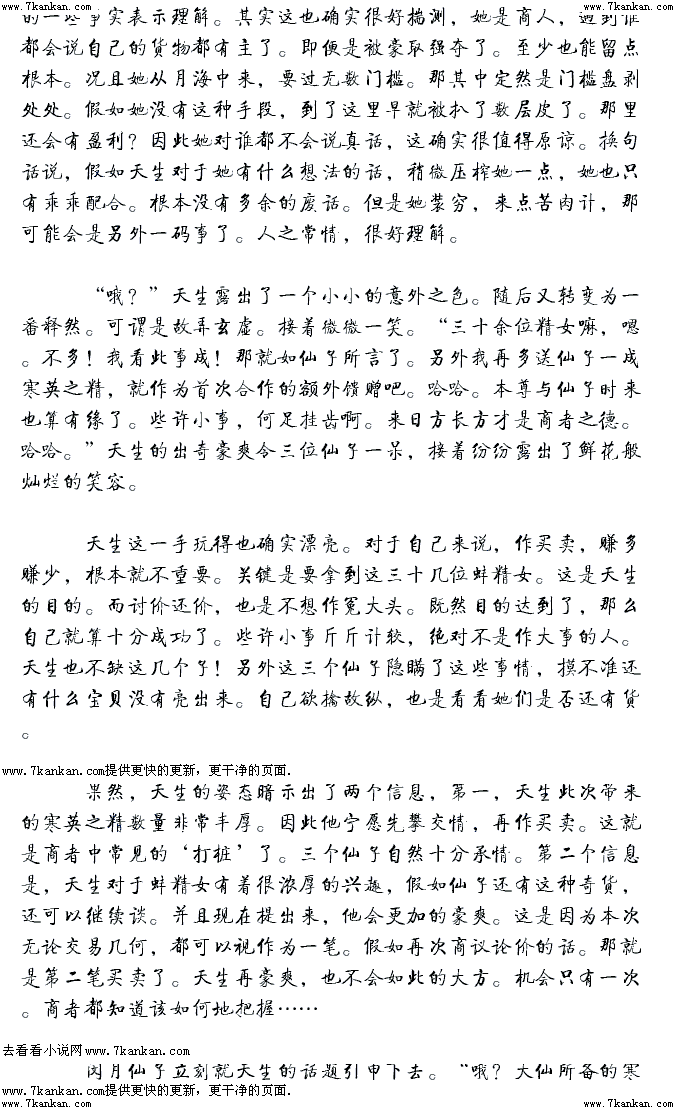 www.7kankan.com www.7kankan.com
的一些事实表示理解。其实这也确实很好揣测，她是商人，遇到谁
都会说自己的货物都有主了。即便是被豪取强夺了。至少也能留点
根本。况且她从月海中来，要过无数门槛。那其中定然是门槛盘剥
处处。假如她没有这种手段，到了这里早就被扒了数层皮了。那里
还会有盈利？因此她对谁都不会说真话，这确实很值得原谅。换句
话说，假如天生对于她有什么想法的话，稍微压榨她一点，她也只
有乖乖配合。根本没有多余的废话。但是她装穷，来点苦肉计，那
可能会是另外一码事了。人之常情，很好理解。
“哦？”天生露出了一个小小的意外之色。随后又转变为一
番释然。可谓是故弄玄虚。接着微微一笑。“三十余位精女嘛，嗯
。不多！我看此事成！那就如仙子所言了。另外我再多送仙子一成
寒英之精，就作为首次合作的额外馈赠吧。哈哈。本尊与仙子时来
也算有缘了。些许小事，何足挂齿啊。来日方长方才是商者之德。
哈哈。”天生的出奇豪爽令三位仙子一呆，接着纷纷露出了鲜花般
灿烂的笑容。
天生这一手玩得也确实漂亮。对于自己来说，作买卖，赚多
赚少，根本就不重要。关键是要拿到这三十几位蚌精女。这是天生
的目的。而讨价还价，也是不想作冤大头。既然目的达到了，那么
自己就算十分成功了。些许小事斤斤计较，绝对不是作大事的人。
天生也不缺这几个子！另外这三个仙子隐瞒了这些事情，摸不准还
有什么宝贝没有亮出来。自己欲擒故纵，也是看看她们是否还有货
。
www.7kankan.com提供更快的更新，更干净的页面.
果然，天生的姿态暗示出了两个信息，第一，天生此次带来
的寒英之精数量非常丰厚。因此他宁愿先攀交情，再作买卖。这就
是商者中常见的‘打桩’了。三个仙子自然十分承情。第二个信息
是，天生对于蚌精女有着很浓厚的兴趣，假如仙子还有这种奇货，
还可以继续谈。并且现在提出来，他会更加的豪爽。这是因为本次
无论交易几何，都可以视作为一笔。假如再次商议论价的话。那就
是第二笔买卖了。天生再豪爽，也不会如此的大方。机会只有一次
。商者都知道该如何地把握……
去看看小说网www.7kankan.com
闵月仙子立刻就天生的话题引申下去。“哦？大仙所备的寒
www.7kankan.com提供更快的更新，更干净的页面.
www.7kankan.com www.7kankan.com